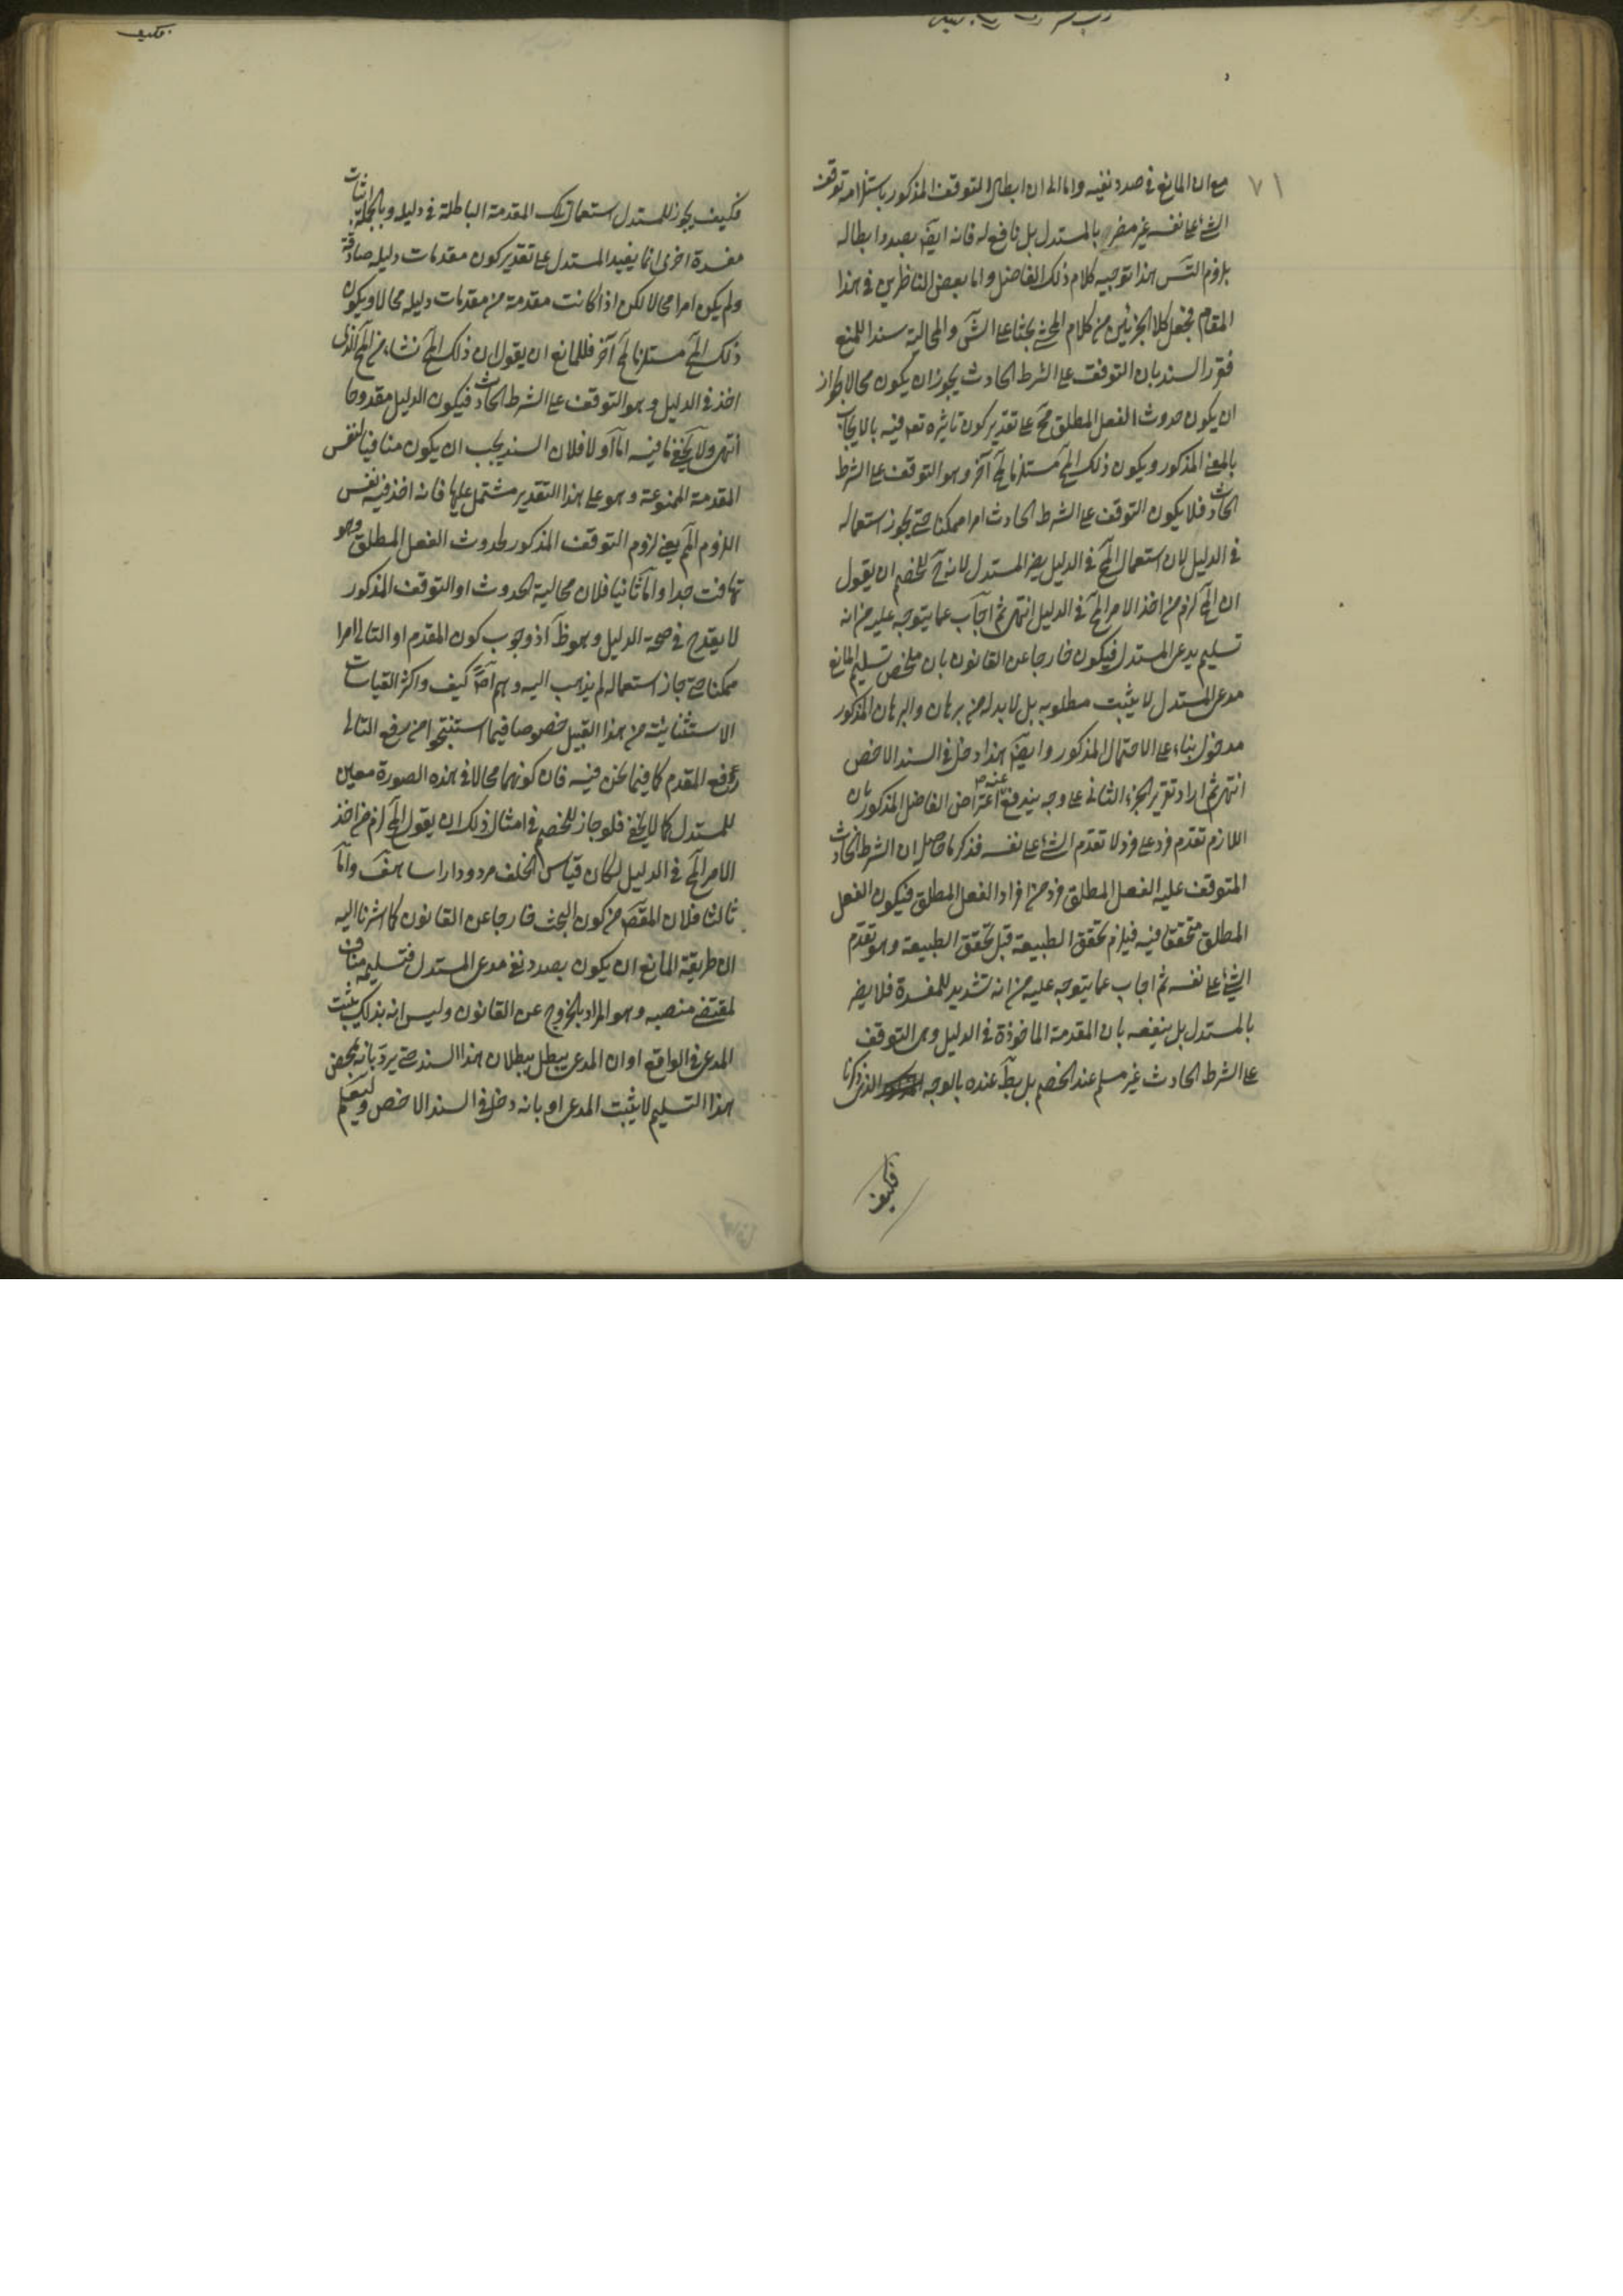 ٧١
مع ان المانع فى صدد نفيه واما الى ان ابطال التوقف المذكور باستلزامه توقف
الشئ على نفسه غير مضر بالمستدل بل نافع له فانه ايضا بصدد ابطاله
بلزوم التس هذا توجيه كلام ذلك الفاضل واما بعض الناظرين فى هذا
المقام فجعل كلا الجزئين من كلام المحشى بحثا على الشق والمحالية سندا للمنع
فقرر السند بان التوقف على الشرط الحادث يجوز ان يكون محالا لجواز
ان يكون حدوث الفعل المطلق مح على تقدير كون تاثيره تعه فيه بالايجاب
بالمعنى المذكور ويكون ذلك المح مستلزما لمح آخر وهو التوقف على الشرط
الحادث فلا يكون التوقف على الشرط الحادث امرا ممكنا حتى يجوز استعماله
فى الدليل لان استعمال المح فى الدليل يضر المستدل لانه ح للخصم ان يقول
ان المح لزم من اخذ الامر المح فى الدليل انتهى ثم اجاب عما يتوجه عليه من انه
تسليم مدعى المستدل فيكون خارجا عن القانون بان ملخص تسليم المانع
مدعى المستدل لا يثبت مطلوبه بل لابد له من برهان والبرهان المذكور
مدخول بناء على الاحتمال المذكور وايضا هذا دخل فى السند الاخص
انتهى ثم اراد تقرير الجزء الثانى على وجه يندفع عنه اعتراض الفاضل المذكور بان
اللازم تقدم فرد على فرد لا تقدم الشئ على نفسه فذكر ما حاصله ان الشرط الحادث
المتوقف عليه الفعل المطلق فرد من افراد الفعل المطلق فيكون الفعل
المطلق متحققا فيه فيلزم تحقق الطبيعة قبل تحقق الطبيعة وهو تقدم
الشئ على نفسه ثم اجاب عما يتوجه عليه من انه تشديد للمفسدة فلا يضر
بالمستدل بل ينفعه بان المقدمة الماخوذة فى الدليل وهى التوقف
على الشرط الحادث غير مسلم عند الخصم بل بط عنده بالوجه الذى ذكرنا
فكيف
فكيف يجوز للمستدل استعمال تلك المقدمة الباطلة فى دليله وبالجملة اثبات
مفسدة اخرى انما يفيد المستدل على تقدير كون مقدمات دليله صادقة
ولم يكن امرا محالا لكن اذا كانت مقدمة من مقدمات دليله محالا ويكون
ذلك المح مستلزما لمح آخر فللمانع ان يقول ان ذلك المح نشاء من المح الذى
اخذ فى الدليل وهو التوقف على الشرط الحادث فيكون الدليل مقدوحا
انتهى ولا يخفى ما فيه اما اولا فلان السند يجب ان يكون منافيا لنفس
المقدمة الممنوعة وهو على هذا التقدير مشتمل عليها فانه اخذ فيه نفس
اللزوم الم يعنى لزوم التوقف المذكور لحدوث الفعل المطلق وهو
تهافت جدا واما ثانيا فلان محالية الحدوث او التوقف المذكور
لا يقدح فى صحة الدليل وهو ظ اذ وجوب كون المقدم او التالى امرا
ممكنا حتى جاز استعماله لم يذهب اليه وهم احد كيف واكثر القياسات
الاستثنائية من هذا القبيل خصوصا فيما استنتجوا من رفع التالى
رفع المقدم كما فيما نحن فيه فان كونهما محالا فى هذه الصورة معين
للمستدل كما لا يخفى فلو جاز للخصم فى امثال ذلك ان يقول المح لزم من اخذ
الامر المح فى الدليل لكان قياس الخلف مردودا راسا هف واما
ثالثا فلان المقصد من كون البحث خارجا عن القانون كما اشرنا اليه
ان طريقة المانع ان يكون بصدد نفى مدعى المستدل فتسليمه مناف
لمقتضى منصبه وهو المراد بالخروج عن القانون وليس انه بذلك يثبت
المدعى فى الواقع او ان المدعى يبطل ببطلان هذا السند حتى يرد بانه بمحض
هذا التسليم لا يثبت المدعى او بانه دخل فى السند الاخص